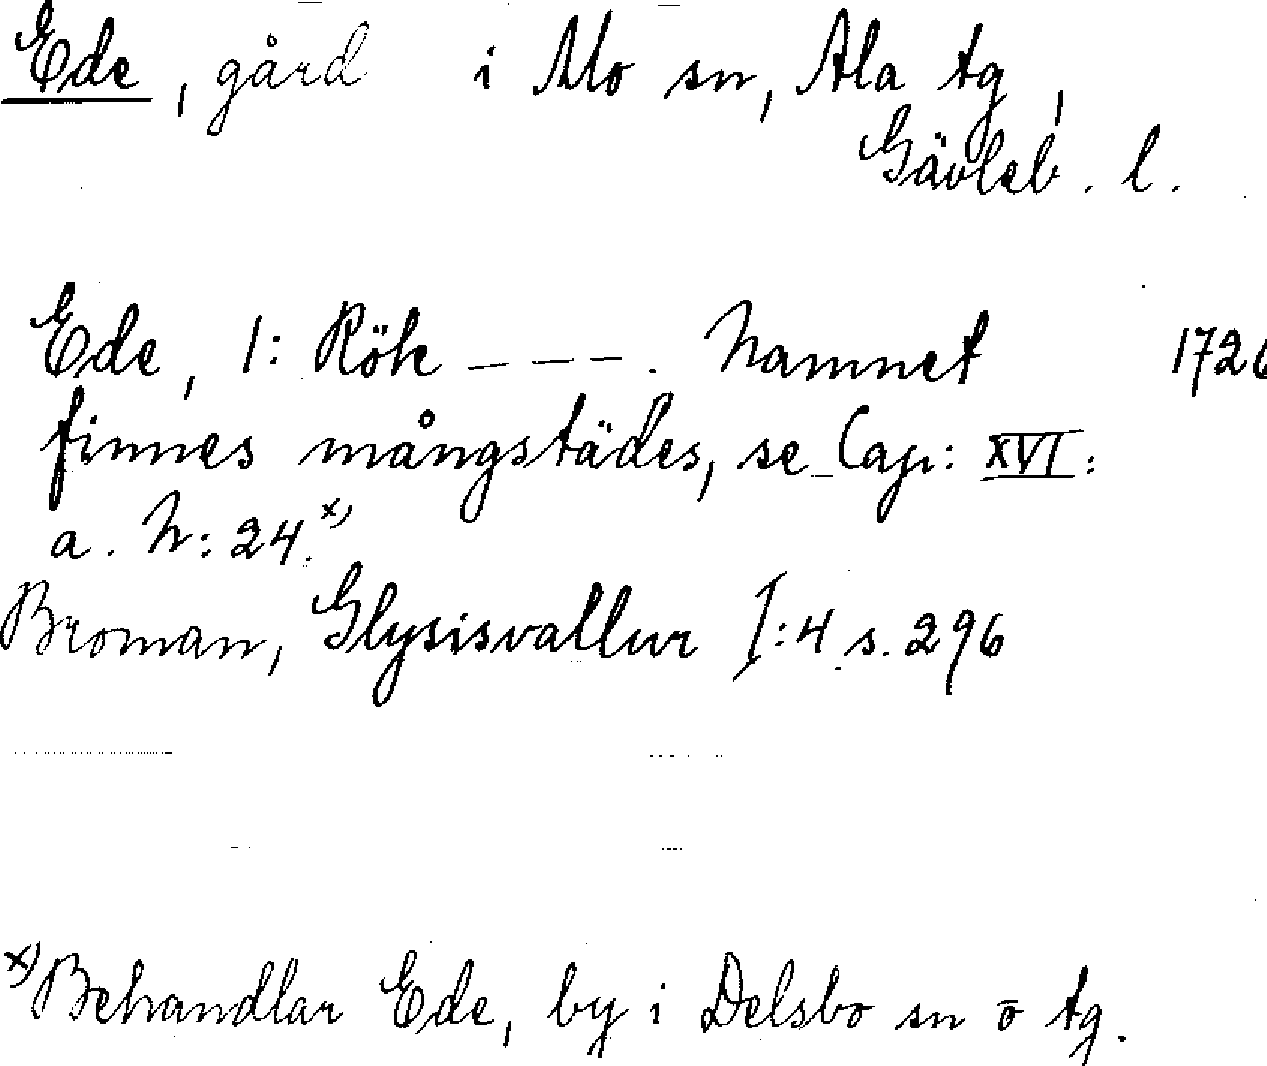 Ede, gård i Mo sn, Ala tg,
Gävleb. l.
Ede, 1: Rök _ _ _ . Namnet 1726
finnes mångstädes, se Cap: XVI:
a. N: 24.x)
Broman, Glysisvallur I:4 s. 296
x) Behandlar Ede, by i Delsbo sn ō tg.